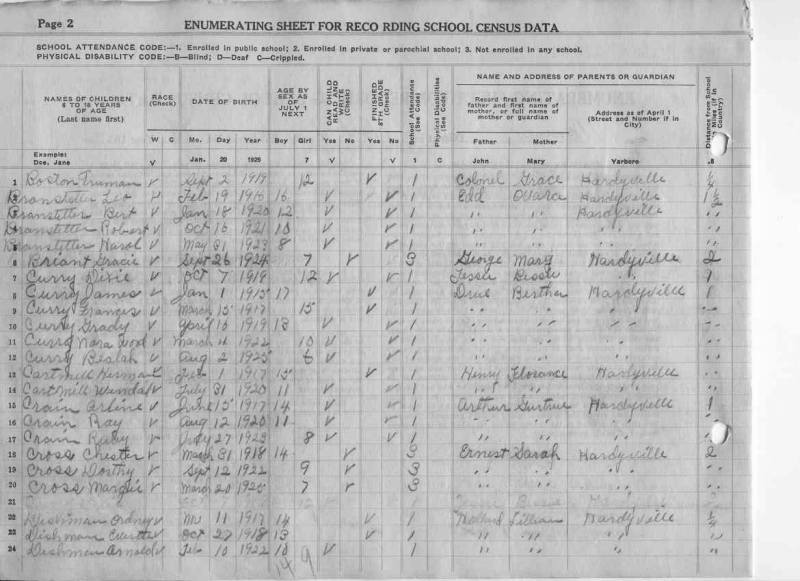 Page 2 ENUMERATING SHEET FOR RECO RDING SCHOOL CENSUS DATA
SCHOOL ATTENDANCE CODE:—1. Enrolled in public school; 2. Enrolled in private or parochial school; 3. Not enrolled in any school.
PHYSICAL DISABILITY CODE:—B—Blind; D—Deaf C—Crippled.
NAMES OF CHILDREN 6 TO 18 YEARS OF AGE (Last name first) RACE (Check) DATE OF BIRTH AGE BY SEX AS OF JULY 1 NEXT CAN CHILD READ AND WRITE (Check) FINISHED 8TH GRADE (Check) School Attendance (See Code) Physical Disabilities (See Code) NAME AND ADDRESS OF PARENTS OR GUARDIAN Distance from School in Miles (If in Country)
Record first name of father and first name of mother, or full name of mother or guardian Address as of April 1 (Street and Number if in City)
W C Mo. Day Year Boy Girl Yes No Yes No 1 C Father Mother
Example: Doe, Jane V Jan. 20 1925 7 V V John Mary Yarboro .8
1 Boston Truman V Sept 2 1919 12 V 1 Colonel Grace Hardyville
Branstetter V Feb 19 1916 16 V V 1 Edd Hardyville 1 1/2
Branstetter Bert V Jan 18 1920 12 V V 1 " " Hardyville "
Branstetter Robert V Oct 16 1921 10 V V 1 " " " "
Branstetter Harol V May 31 1923 8 V V 1 " " " "
6 Briant Gracie V Sept 26 1924 7 V 3 George Mary Hardyville 2
7 Curry Dixie V Oct 7 1919 12 V V 1 Jessie Bessie " " 1
8 Curry James V Jan 1 1915 17 V 1 Bertha Hardyville 1
9 Curry Frances V March 15 1917 15 V 1 " " " "
10 Curry Grady V April 16 1919 13 V V 1 " " " "
11 Curry V March 4 1922 10 V V 1 " " " "
12 Curry Bealah V Aug 2 1925 6 V V 1 " " " "
13 Cartmill Herman V Feb 1 1917 15 V 1 Henry Florance Hardyville "
14 Cartmill V July 31 1920 11 V V 1 " " " "
15 Crain Arline V June 15 1917 14 V V 1 Arthur Hardyville 1
16 Crain Ray V Aug 12 1920 11 V V 1 " " " "
17 Crain Ruby V July 27 1923 8 V V 1 " " " "
18 Cross Chester V March 31 1918 14 V 3 Ernest Sarah Hardyville 2
19 Cross Dorthy V Sept 12 1922 9 V 3 " " " "
20 Cross Margie V March 20 1925 7 V 3 " " " "
21
22 Dishman Ordney V 11 1917 14 V 1 Lillian Hardyville
23 Dishman V Oct 27 1918 13 V 1 " " " "
24 Dishman Arnold V Feb 10 1922 10 V 1 " " " "
14 9